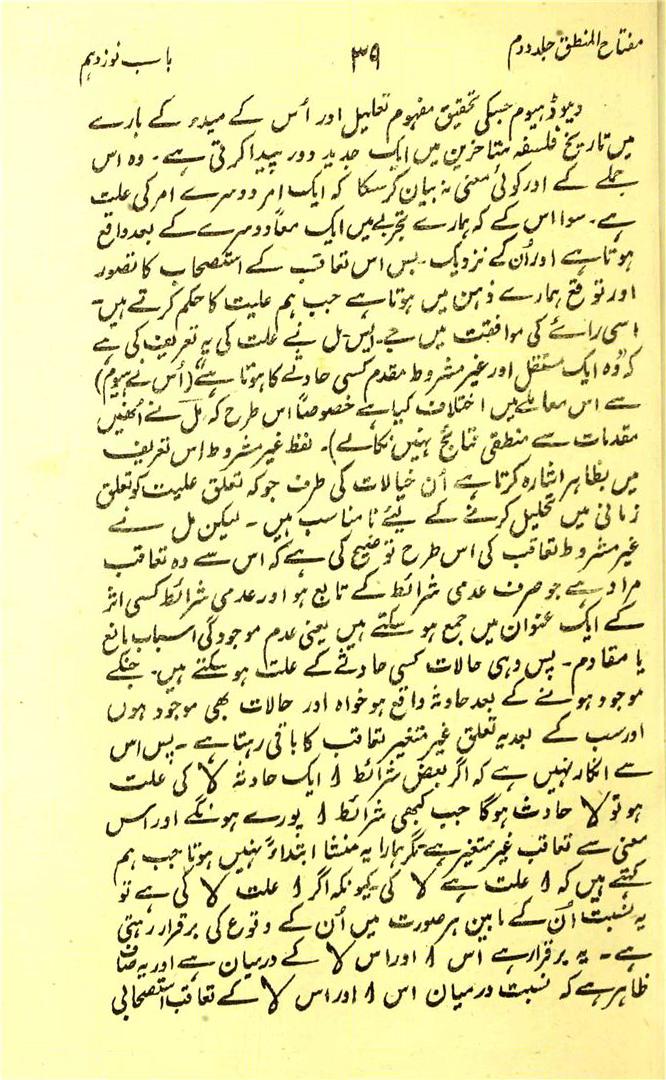 مفتاح المنطق جلد دوم
۳۹
باب نوزدہم
ڈیوڈ ہیوم جسکی تحقیق مفہوم تعلیل اور اُس کے مبدء کے بارے
میں تاریخ فلسفہ متاخرین میں ایک جدید دور پیدا کرتی ہے۔ وہ اس
جملے کے اور کوئی معنی نہ بیان کر سکا کہ ایک امر دوسرے امر کی علت
ہے۔ سوا اس کے کہ ہمارے تجربے میں ایک معاً دوسرے کے بعد واقع
ہوتا ہے اور اُن کے نزدیک۔ بس اس تعاقب کے استصحاب کا تصور
اور توقع ہمارے ذہن میں ہوتا ہے جب ہم علیت کا حکم کرتے ہیں۔
اسی رائے کی موافقت میں جے۔ ایس۔ مل نے علت کی یہ تعریف کی ہے
کہ ”وہ ایک مستقل اور غیر مشروط مقدم کسی حادثے کا ہوتا ہے“ (اُس نے ہیوم)
سے اس معاملے میں اختلاف کیا ہے خصوصاً اس طرح کہ مل نے اُنھیں
مقدمات سے منطقی نتائج نہیں نکالے)۔ لفظ غیر مشروط اس تعریف
میں بظاہر اشارہ کرتا ہے اُن خیالات کی طرف جو کہ تعلق علیت کو تعلق
زمانی میں تحلیل کرنے کے لیے نا مناسب ہیں۔ لیکن مل نے
غیر مشروط تعاقب کی اس طرح توضیح کی ہے کہ اس سے وہ تعاقب
مراد ہے جو صرف عدمی شرائط کے تابع ہو اور عدمی شرائط کسی اثر
کے ایک عنوان میں جمع ہو سکتے ہیں یعنی عدم موجودگی اسباب مانع
یا مقادم۔ پس وہی حالات کسی حادثے کے علت ہو سکتے ہیں۔ جنکے
موجود ہونے کے بعد حادثہ واقع ہو خواہ اور حالات بھی موجود ہوں
اور سب کے بعد یہ تعلق غیر متغیر تعاقب کا باقی رہتا ہے۔ پس اس
سے انکار نہیں ہے کہ اگر بعض شرائط ا ایک حادثہ لا کی علت
ہو تو لا حادث ہوگا جب کبھی شرائط ا پورے ہونگے اور اس
معنی سے تعاقب غیر متغیر ہے مگر ہمارا یہ منشا ابتداءً نہیں ہوتا جب ہم
کہتے ہیں کہ ا علت ہے لا کی کیونکہ اگر ا علت لا کی ہے تو
یہ نسبت اُن کے مابین ہر صورت میں اُن کے وقوع کی برقرار رہتی
ہے۔ یہ برقرار ہے اس ا اور اس لا کے درمیان ہے اور یہ صاف
ظاہر ہے کہ نسبت درمیان اس ا اور اس لا کے تعاقب استصحابی